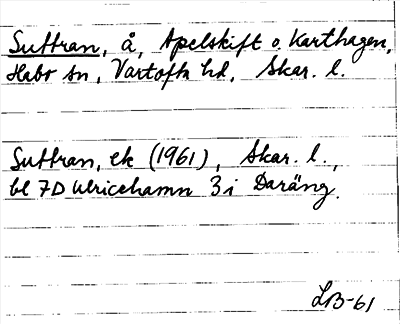 Suttran, å, Apelskift o. Karthagen,
Habo sn, Vartofta hd, Skar. l.
Suttran, ek (1961), Skar. l.,
bl 7D Ulricehamn 3i Daräng.
LB-61